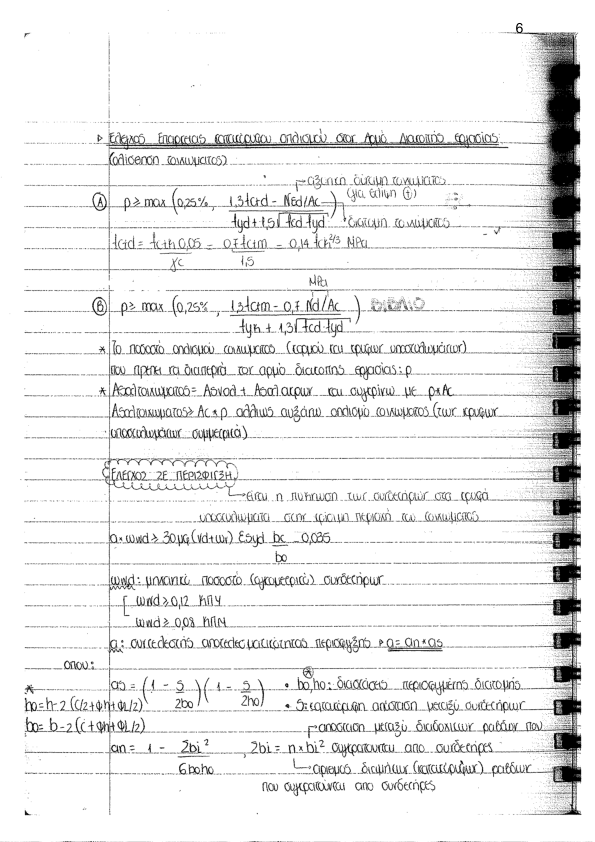 6
▷ Έλεγχος Επάρκειας κατακόρυφου οπλισμού στον Αρμό Διακοπής εργασίας
(ολίσθηση τοιχώματος)
αξονική δύναμη τοιχώματος
(για θλίψη ⊕)
Ⓐ ρ ≥ max (0,25% , (1,3 fctd - Νed/Ac) / (fyd + 1,5√fcd fyd))
διατομή τοιχώματος
fctd = fctk 0,05 / γc = 0,7 fctm / 1,5 = 0,14 fck^2/3 MPa
MPa
Ⓑ ρ ≥ max (0,25% , (1,3 fctm - 0,7 Nd/Ac) / (fyk + 1,3√fcd fyd)) ΒΙΒΛΙΟ
* Το ποσοστό οπλισμού τοιχώματος (κορμού και κρυφων υποστυλωμάτων)
που πρέπει να διαπερνά τον αρμό διακοπής εργασίας: ρ
* Asολτοιχώματος = Asνολ + Asολακρων και συγκρίνω με ρ*Ac
Asολτοιχώματος ≥ Ac * ρ αλλιως αυξάνω οπλισμό τοιχώματος (των κρυφων
υποστυλωμάτων συμμετρικά)
ΕΛΕΓΧΟΣ ΣΕ ΠΕΡΙΣΦΙΓΞΗ
είναι η πύκνωση των συνδετήρων στα κρυφά
υποστυλώματα στην κρίσιμη περιοχή του τοιχώματος
α * ωwd ≥ 30 μφ (νd + ων) εsyd bc/bo - 0,035
ωwd: μηχανικό ποσοστό (ογκομετρικό) συνδετήρων
ωwd ≥ 0,12 ΚΠΥ
ωwd ≥ 0,08 ΚΠΜ
α: συντελεστής αποτελεσματικότητας περισφιγξης ▷ α = αn * αs
οπου:
αs = (1 - s/2bo) (1 - s/2ho) • bo, ho: διαστάσεις περισφιγμένης διατομής
*
ho = h - 2 (c/2 + φh + φL/2)
• S: κατακόρυφη απόσταση μεταξύ συνδετήρων
bo = b - 2 (c + φh + φL/2)
απόσταση μεταξύ διαδοχικων ράβδων που
αn = 1 - Σbi² / 6boho , Σbi = n * bi² συγκρατούνται απο συνδετήρες
αριθμός διαμήκων (κατακόρυφων) ράβδων
που συγκρατούνται απο συνδετήρες